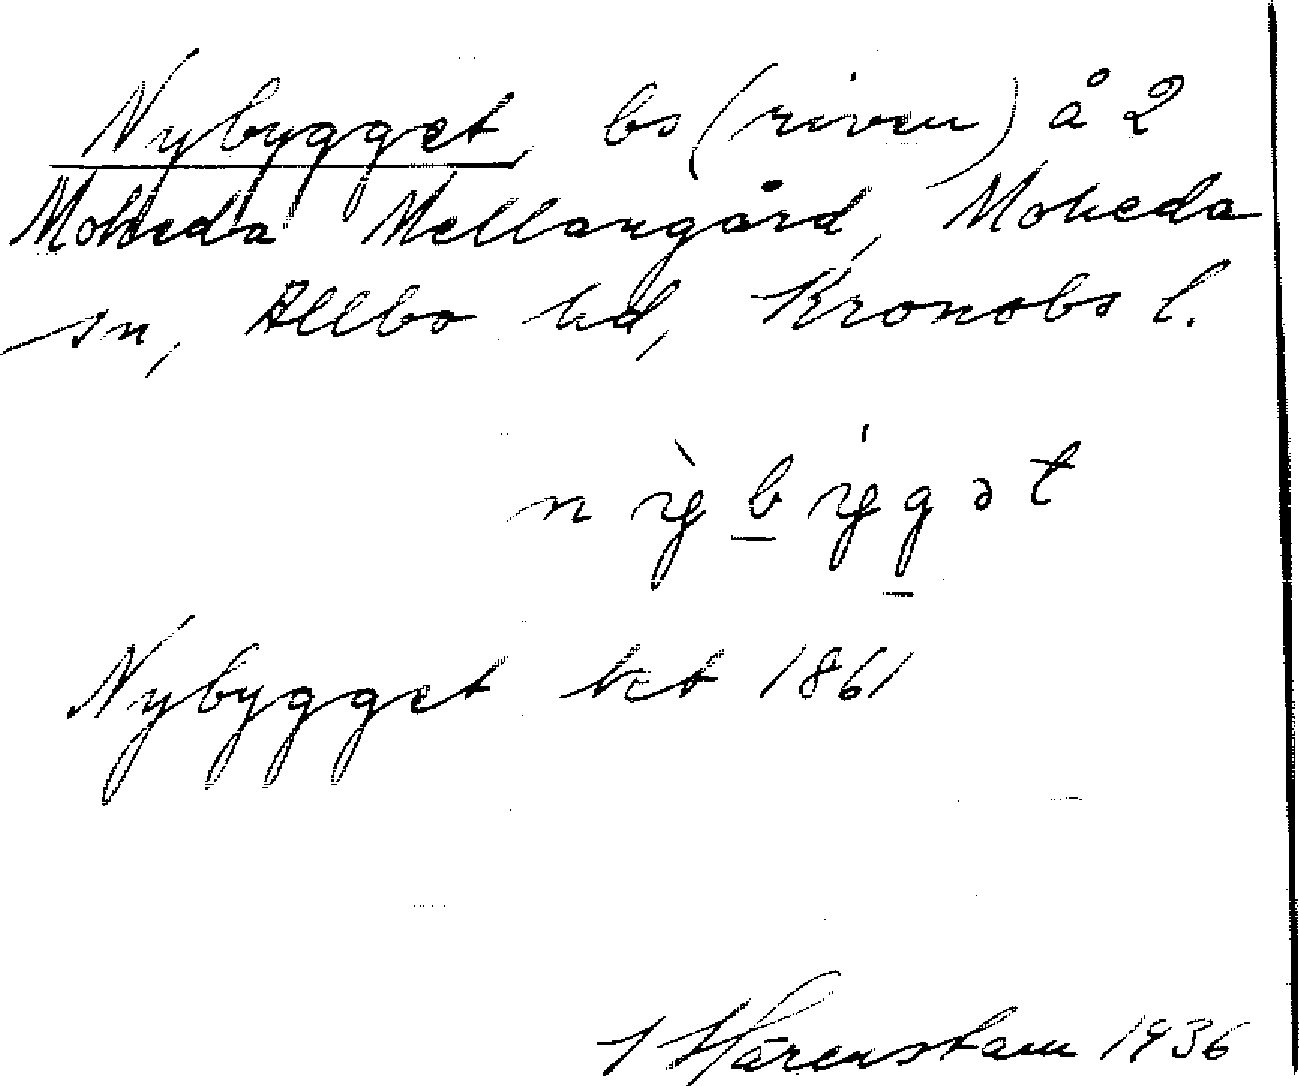 Nybygget, bs (riven) å 2
Moheda Mellangård, Moheda
sn, Allbo hd, Kronobs l.
nỳbýgət
Nybygget kt 1861
J Härenstam 1936